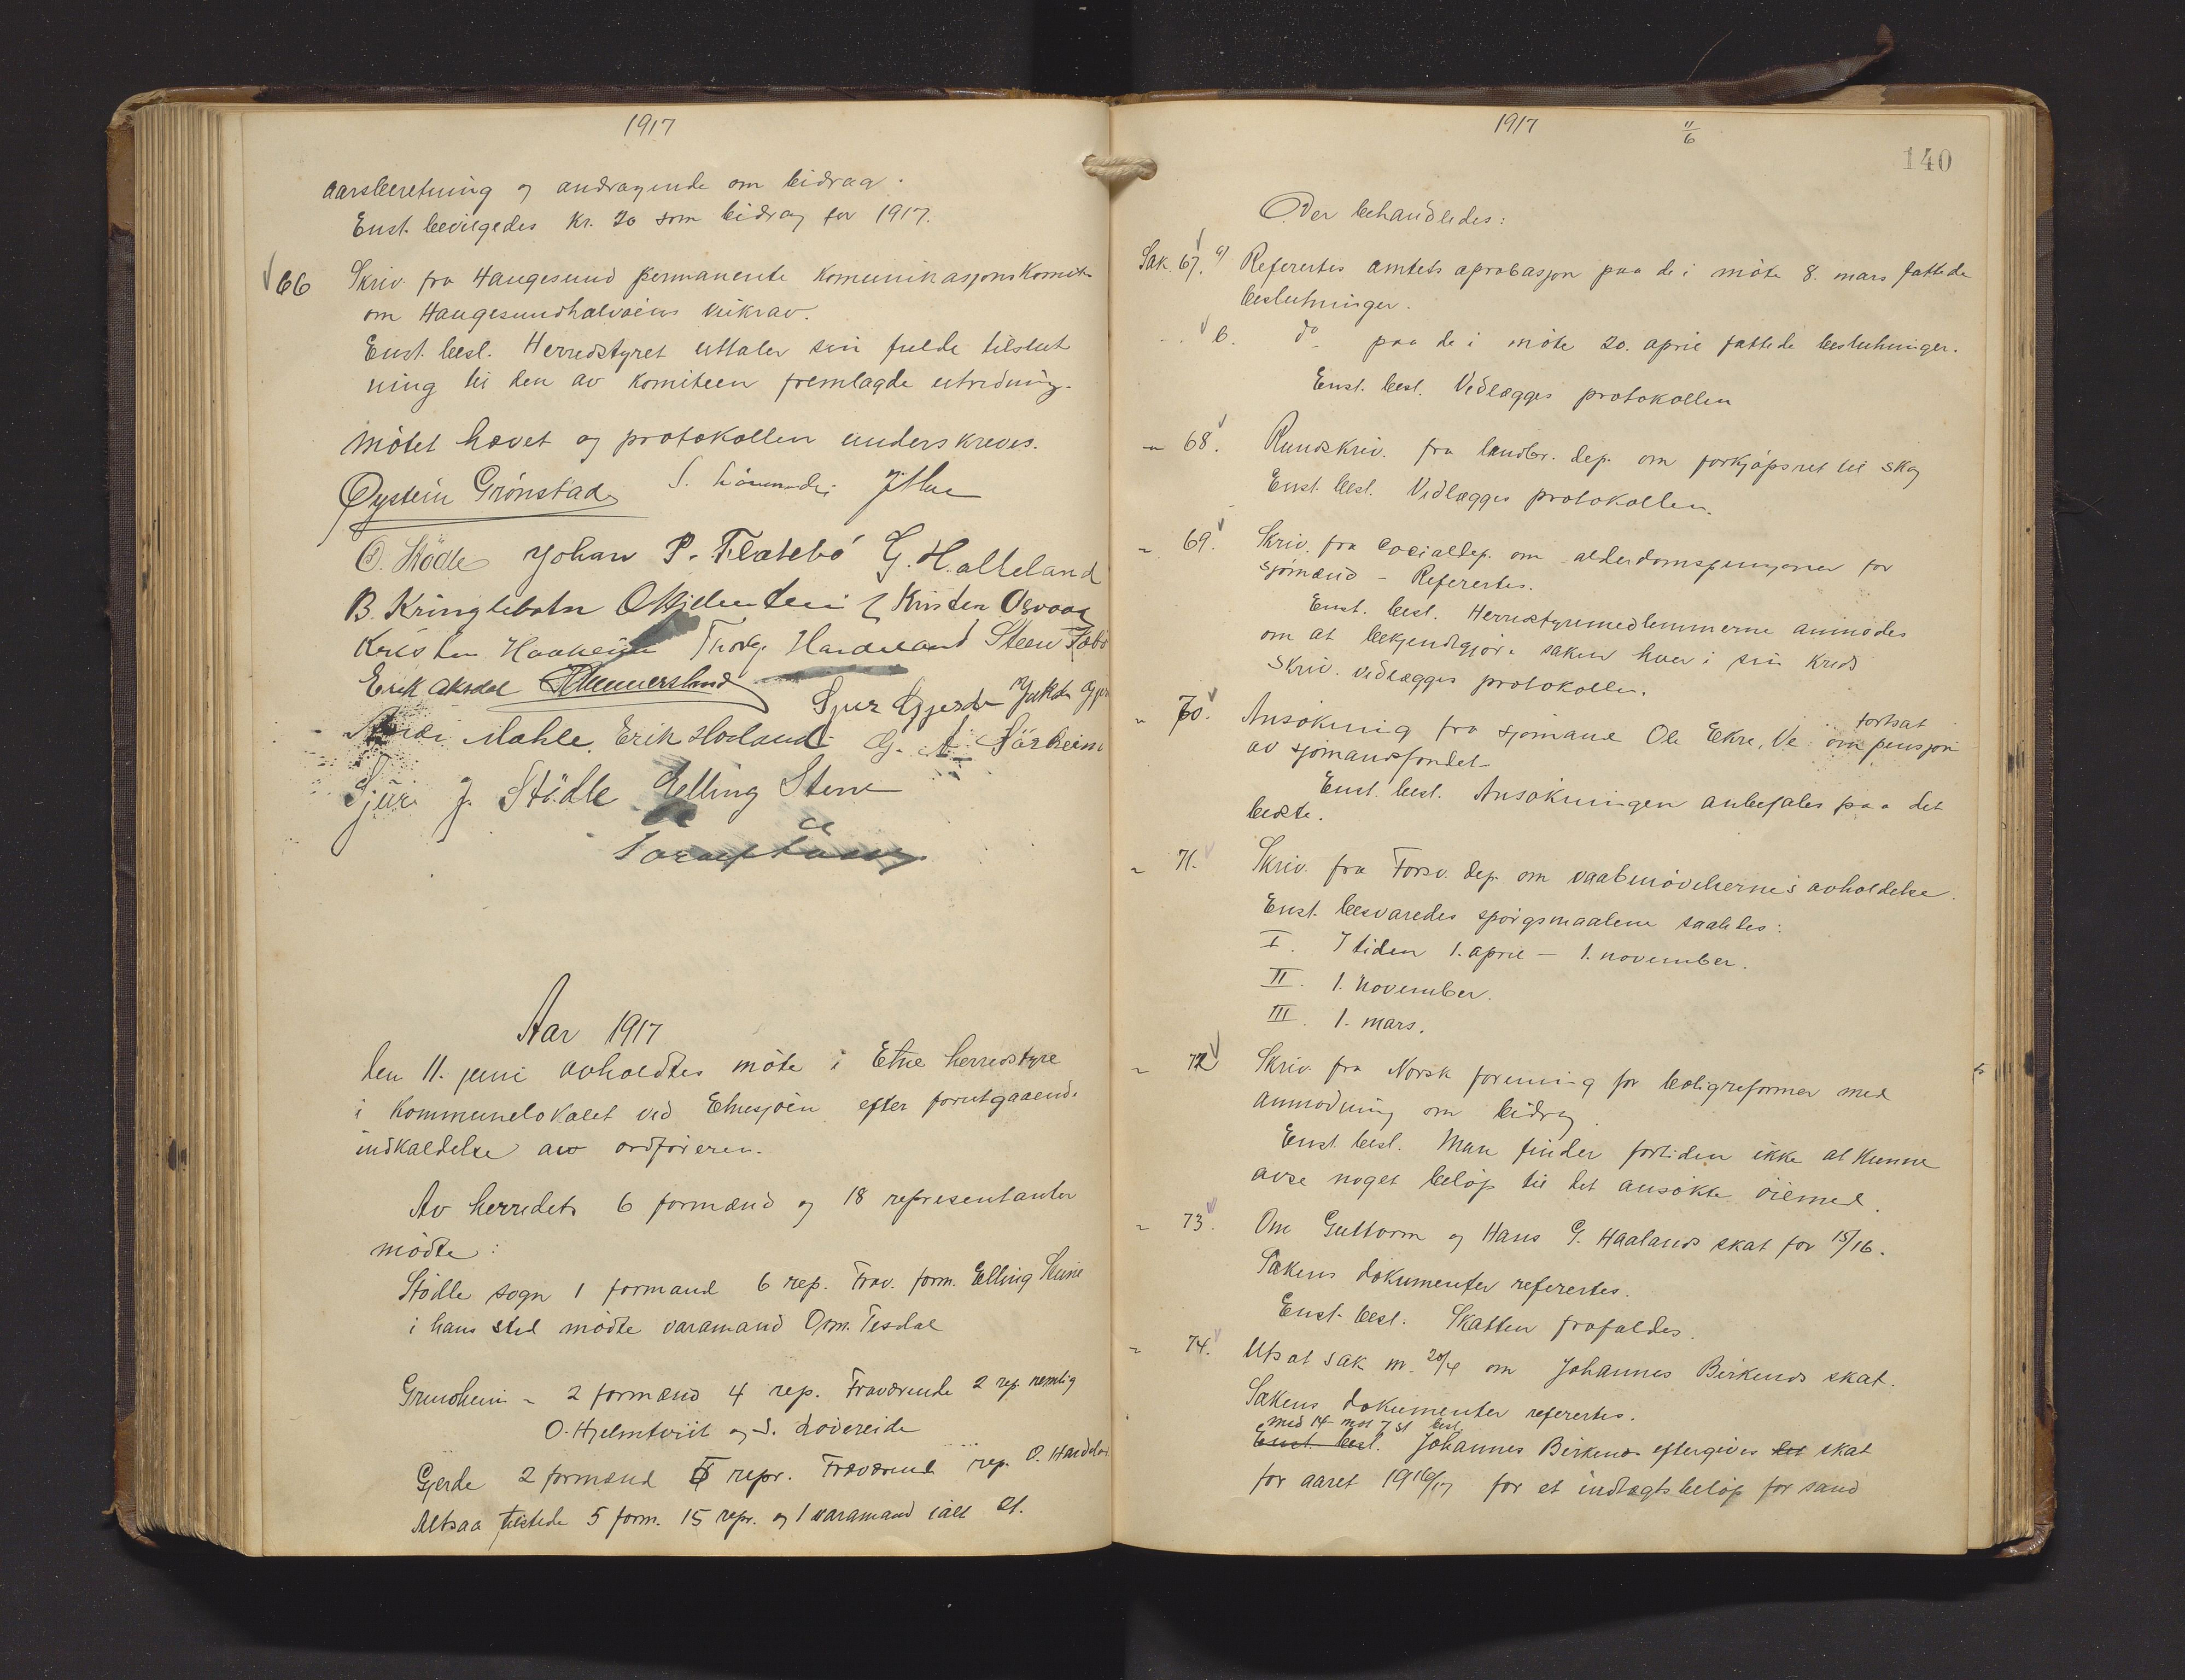 1917
aarsberetning og andragende om bidrag.
Enst. bevilgedes kr. 20 som bidrag for 1917.
66 Skriv fra Haugesund permanente komunikasjonskomite
om Haugesundhalvöens veikrav.
Enst. besl. Herredstyret uttaler sin fulde tilslut
ning til den av komiteen fremlagde utredning.
Mötet hævet og protokollen underskreves.
Øystein Grönstad
O. Stödle Johan P. Flatebö G. Halleland
B. Kringlebotn Kristen Osvaag
Kristen Haaheim Thorg. Handeland Steen Sæbö
Erik Aksdal Sjur Gjerde
Mæhle. Erik Hovland G. A. Särheim
Sjur J. Stödle Elling Stene
Aar 1917
den 11. juni avholdtes möte i Etne herredstyre
i kommunelokalet ved Etnesjöen efter forutgaaende
indkaldelse av ordföreren.
Av herredets 6 formænd og 18 representanter
mödte:
Stödle sogn 1 formand 6 rep. Frav. form. Elling Stene
i hans sted mödte varamand Om. Tesdal
Grindheim - 2 formænd 4 rep. Fraværende 2 rep. nemlig
O. Hjelmtveit og S. Lövereide
Gjerde 2 formænd 5 repr. Fraværende rep. O. Handeland
Altsaa tilstede 5 form. 15 repr. og 1 varamand ialt 21.
1917 11/6
140
Der behandledes:
Sak. 67. a) Referertes amtets aprobasjon paa de i möte 8. mars fattede
beslutninger.
b. do paa de i möte 20. april fattede beslutninger.
Enst. besl. Vedlægges protokollen
" 68. Rundskriv. fra landbr. dep. om forkjöpsret til skog
Enst. besl. Vedlægges protokollen.
" 69. Skriv. fra Socialdep. om alderdomspensjoner for
sjömænd - Referertes.
Enst. besl. Herredstyremedlemmerne anmodes
om at bekjendtgjöre saken hver i sin kreds
Skriv. vedlægges protokollen.
" 70. Ansökning fra sjömand Ole Ekre, Ve om fortsat pensjon
av sjömandsfondet
Enst. besl. Ansökningen anbefales paa det
bedste.
" 71. Skriv. fra Forsv. dep. om vaabenövelsernes avholdelse.
Enst. besvaredes spörgsmaalene saaledes:
I. I tiden 1. april - 1. november.
II. 1. November.
III. 1. mars.
" 72 Skriv. fra Norsk forening for boligreformer med
anmodning om bidrag.
Enst. besl. Man finder fortiden ikke at kunne
avse noget belöp til det ansökte öiemed.
" 73. Om Guttorm og Hans G. Haalands skat for 15/16.
Sakens dokumenter referertes.
Enst. besl. Skatten frafaldes.
" 74. Utsat sak m. 20/4 om Johannes Birkenes skat.
Sakens dokumenter referertes.
med 14 mot 7 st besl.
Enst. besl. Johannes Birkenes eftergives det skat
for aaret 1916/17 for et indtægtsbelöp for sand